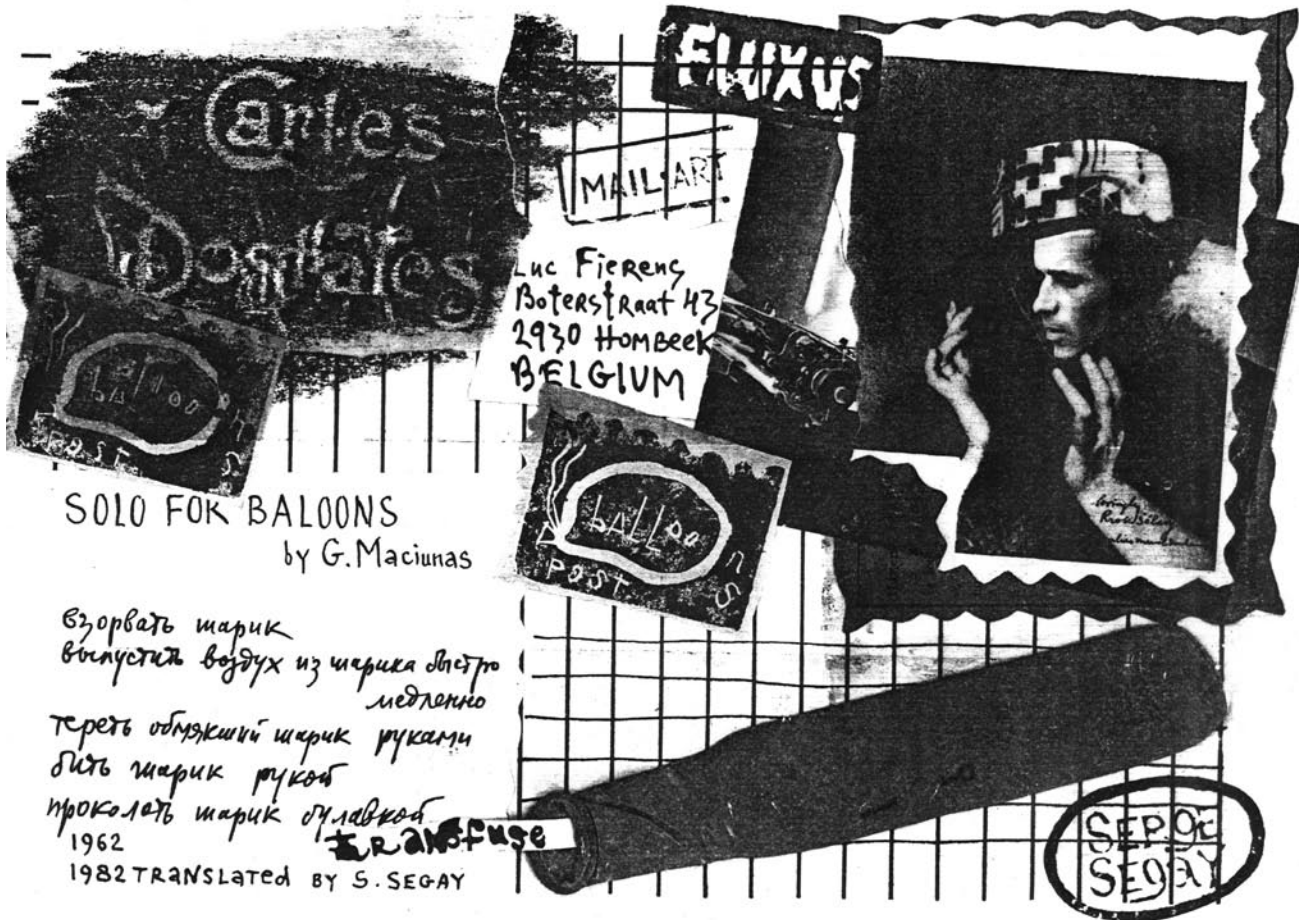 Cartes
Postales
FLUXUS
MAIL-ART
Luc Fierens
Boterstraat 43
2930 Hombeek
BELGIUM
bALLoons
post
bALLoons
post
SOLO FOR BALOONS
by G. Maciunas
взорвать шарик
выпустить воздух из шарика быстро
медленно
тереть обмякший шарик руками
бить шарик рукой
проколоть шарик булавкой
1962
1982 TRANSLATED BY S. SEGAY
transfuse
SEGAY